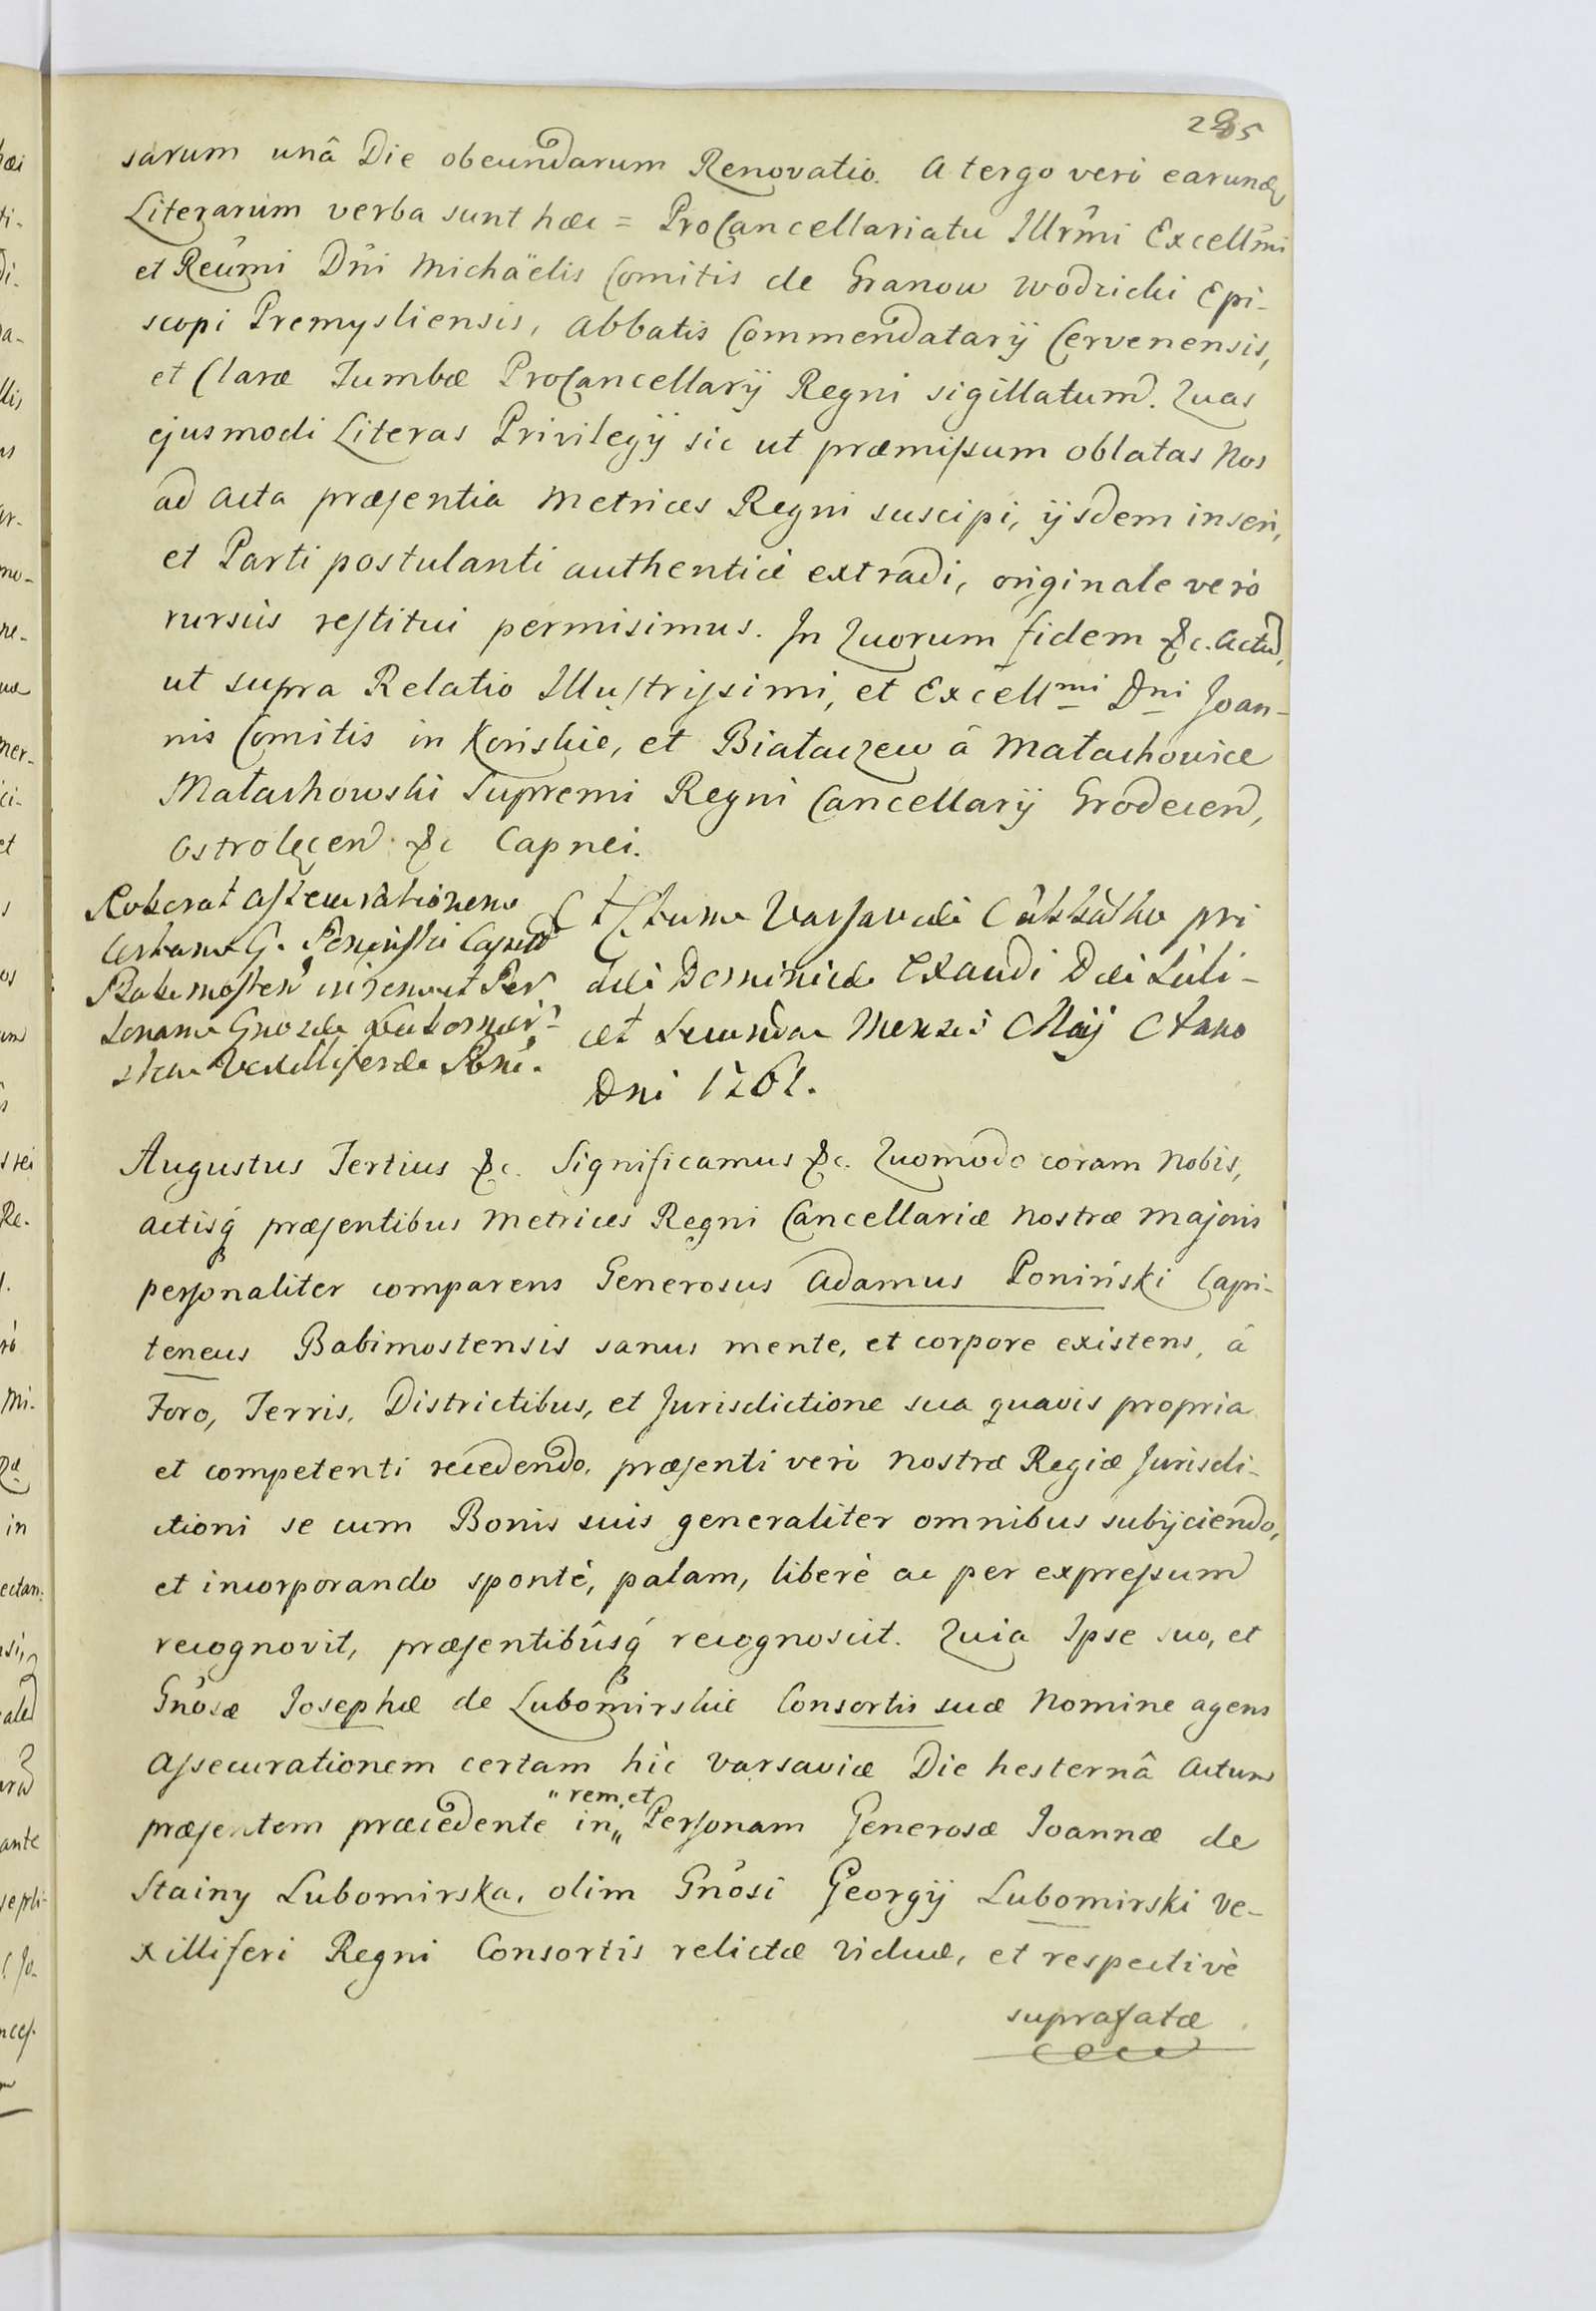 285
sarum unâ Die obeundarum Renovatio. A tergo verò earundē
Literarum verba sunt hæc = ProCancellariatu Illr̃mi Excell̃mi
et Reũmi Dñi Michaëlis Comitis de Granow Wodzicki Epi-
scopi Premysliensis, Abbatis Commendatarij Cervenensis,
et Claræ Tumbæ ProCancellarij Regni sigillatum. Quas
ejusmodi Literas Privilegij sic ut præmissum oblatas Nos
ad Acta præsentia Metrices Regni suscipi, ijsdem inseri,
et Parti postulanti authenticè extradi, originale verò
rursùs restitui permisimus. In Quorum fidem &c. Actum
ut supra Relatio Illustrissimi, et Excellmi Dni Joan-
nis Comitis in Końskie, et Białaczew â Małachowice
Małachowski Supremi Regni Cancellarij Grodecen,
Ostrolęcen &c Capnei.
Roborat Assecurationem
certam G. Poniński Capnei
Babimosten in rem et Per
sonam Gnosæ Lubomir-
skiew Vexilliferæ Regni.
Actum Varsaviæ Sabbatho pri
die Dominicæ Exaudi Die Scili-
cet Secunda Mensis Maij Anno
Dni 1761.
Augustus Tertius &c. Significamus &c. Quomodo coram Nobis,
Actisq́ præsentibus Metrices Regni Cancellariæ Nostræ Majoris
personaliter comparens Generosus Adamus Poniński Capi-
taneus Babimostensis sanus mente, et corpore existens, â
Foro, Terris, Districtibus, et Jurisdictione sua quavis propria
et competenti recedendo, præsenti verò Nostræ Regiæ Jurisdi-
ctioni se cum Bonis suis generaliter omnibus subijciendo,
et incorporando spontè, palam, liberè ac per expressum
recognovit, præsentibûsq́ recognoscit. Quia Ipse suo, et
Gnõsæ Josephæ de Lubomirskie Consortis suæ Nomine agens
Assecurationem certam hîc Varsaviæ Die hesternâ Actum
præsentem præcedente in „ rem et „ Personam Generosæ Joannæ de
Stainy Lubomirska, olim Gnõsi Georgij Lubomirski Ve-
xilliferi Regni Consortis relictæ Viduæ, et respectivè
suprafatæ